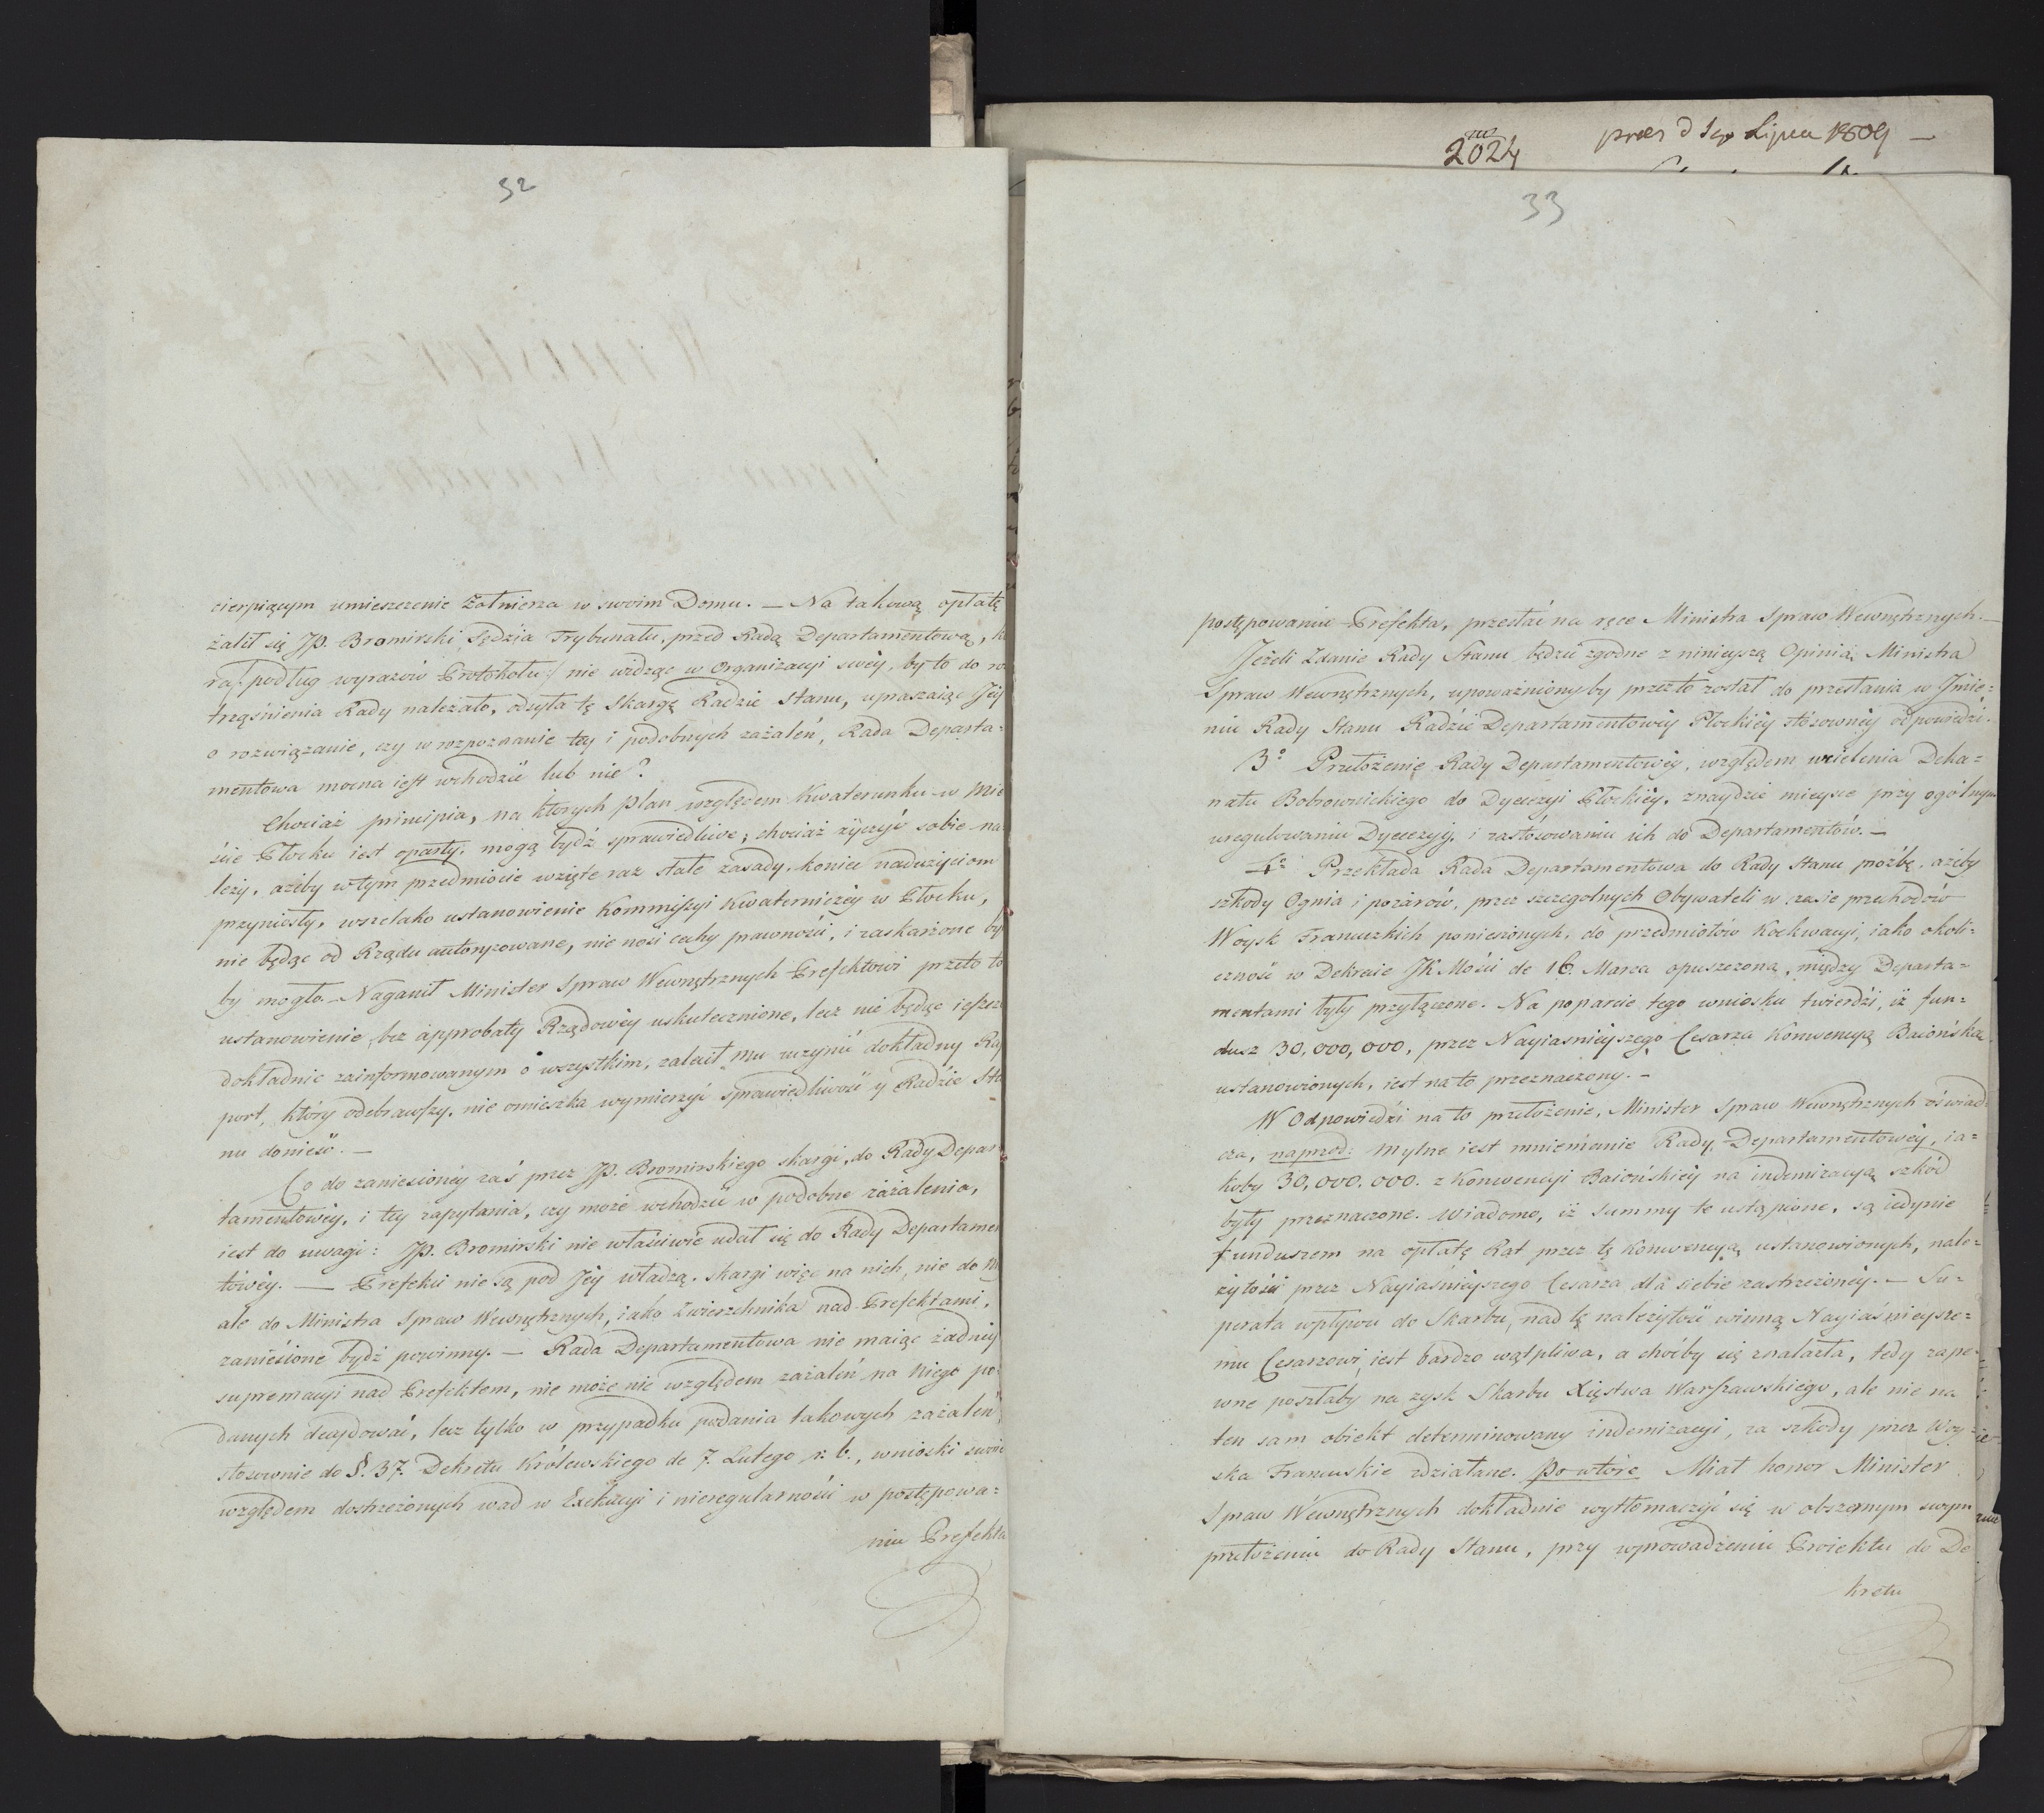 32
cierpiącym umieszczenie Żołnierza w swoim Domu. — Na takową opłatę
żalił się JP. Bromirski Sędzia Trybunału, przed Radą Departamentową, k
ra /: podług wyrazów Protokołu :/ nie widząc w Organizacyi swéy, by to do ro
trząśnienia Rady należało, odsyła tę Skargę Radzie Stanu, upraszaiąc Jéy
o rozwiązanie, czy w rozpoznanie téy i podobnych zażaleń, Rada Departa=
mentowa mocna iest wchodzić lub nie?
Chociaż principia, na których plan względem Kwaterunku w Mie
ście Płocku iest oparty, mogą bydź sprawiedliwe; chociaż życzyć sobie na
leży, ażeby w tym przedmiocie wzięte raz stałe zasady, koniec nadużyciom
przyniosły, wszelako ustanowienie Kommissyi Kwaterniczéy w Płocku,
nie będąc od Rządu autoryzowane, nie nosi cechy prawności, i zaskarżone by
by mogło. — Naganił Minister Spraw Wewnętrznych Prefektowi przeto to
ustanowienie, bez approbaty Rządowéy uskutecznione, lecz nie będąc ieszcze
dokładnie zainformowanym o wszystkim, zalecił mu uczynić dokładny Ra
port, który odebrawszy, nie omieszka wymierzyć sprawiedliwość y Radzie Sta
nu donieść. —
Co do zaniesionéy zaś przez JP. Bromirskiego skargi, do Rady Depar
tamentowéy, i téy zapytania, czy może wchodzić w podobne zażalenia,
iest do uwagi: JP. Bromirski nie właściwie udał się do Rady Departamen
towéy. — Prefekci nie są pod Jéy władzą, skargi więc na nich, nie do N
ale do Ministra Spraw Wewnętrznych, iako Zwierzchnika nad Prefektami,
zaniesione bydź powinny. — Rada Departamentowa nie maiąc żadnéy
supremacyi nad Prefektem, nie może nic względem zażaleń na Niego po=
danych decydować, lecz tylko w przypadku podania takowych zażaleń,
stosownie do §. 37. Dekretu Królewskiego de 7. Lutego r. b., wnioski swoie
względem dostrzeżonych wad w Exekucyi i nieregularności w postępowa=
niu Prefekta
2024
prees d 1go Lipca 1809 —
33
postępowaniu Prefekta, przesłać na ręce Ministra Spraw Wewnętrznych. —
Jeżeli Zdanie Rady Stanu będzie zgodne z ninieyszą Opinią Ministra
Spraw Wewnętrznych, upoważniony by przeto został do przesłania w Jmie=
niu Rady Stanu Radzie Departamentowéy Płockiéy stósownéy odpowiedzi.
3o Przełożenie Rady Departamentowéy, względem wcielenia Deka=
natu Bobrownickiego do Dyecezyi Płockiéy, znaydzie mieysce przy ogólnym
uregulowaniu Dyecezyy, i zastosowaniu ich do Departamentów. —
4o Przekłada Rada Departamentowa do Rady Stanu proźbę, ażeby
szkody Ognia i pożarów, przez szczególnych Obywateli w czasie przechodów
Woysk Francuzkich poniesionych, do przedmiotów Koekwacyi, iako okoli=
czność w Dekrecie JK Mości de 16. Marca opuszczoną, między Departa=
mentami były przyłączone. Na poparcie tego wniosku twierdzi, iż fun=
dusz 30,000,000, przez Nayiaśnieyszego Cesarza Konwencyą Baiońską
ustanowionych, iest na to przeznaczony. —
W Odpowiedzi na to przełożenie, Minister Spraw Wewnętrznych oświad
cza, naprzod: mylne iest mniemanie Rady Departamentowéy, ia=
koby 30,000,000. z Konwencyi Baiońskiéy na indemizacyą szkód
były przeznaczone. Wiadomo, iż summy te ustąpione, są iedynie
funduszem na opłatę Rat przez tę Konwencyą ustanowionych, nale=
żytości przez Nayiaśnieyszego Cesarza dla siebie zastrzeżonéy. — Su=
perata wpływu do Skarbu, nad tę należytość winną Nayiaśnieysze=
mu Cesarzowi, iest bardzo wątpliwa, a choćby się znalazła, tedy zape=
wne poszłaby na zysk Skarbu Xięstwa Warszawskiego, ale nie na
ten sam obiekt determinowany indemizacyi, za szkody przez Woy=
ska Francuskie zdziałane. Powtóre Miał honor Minister
Spraw Wewnętrznych dokładnie wytłomaczyć się w obszernym swym
przełożeniu do Rady Stanu, przy wprowadzeniu Proiektu do De
kretu